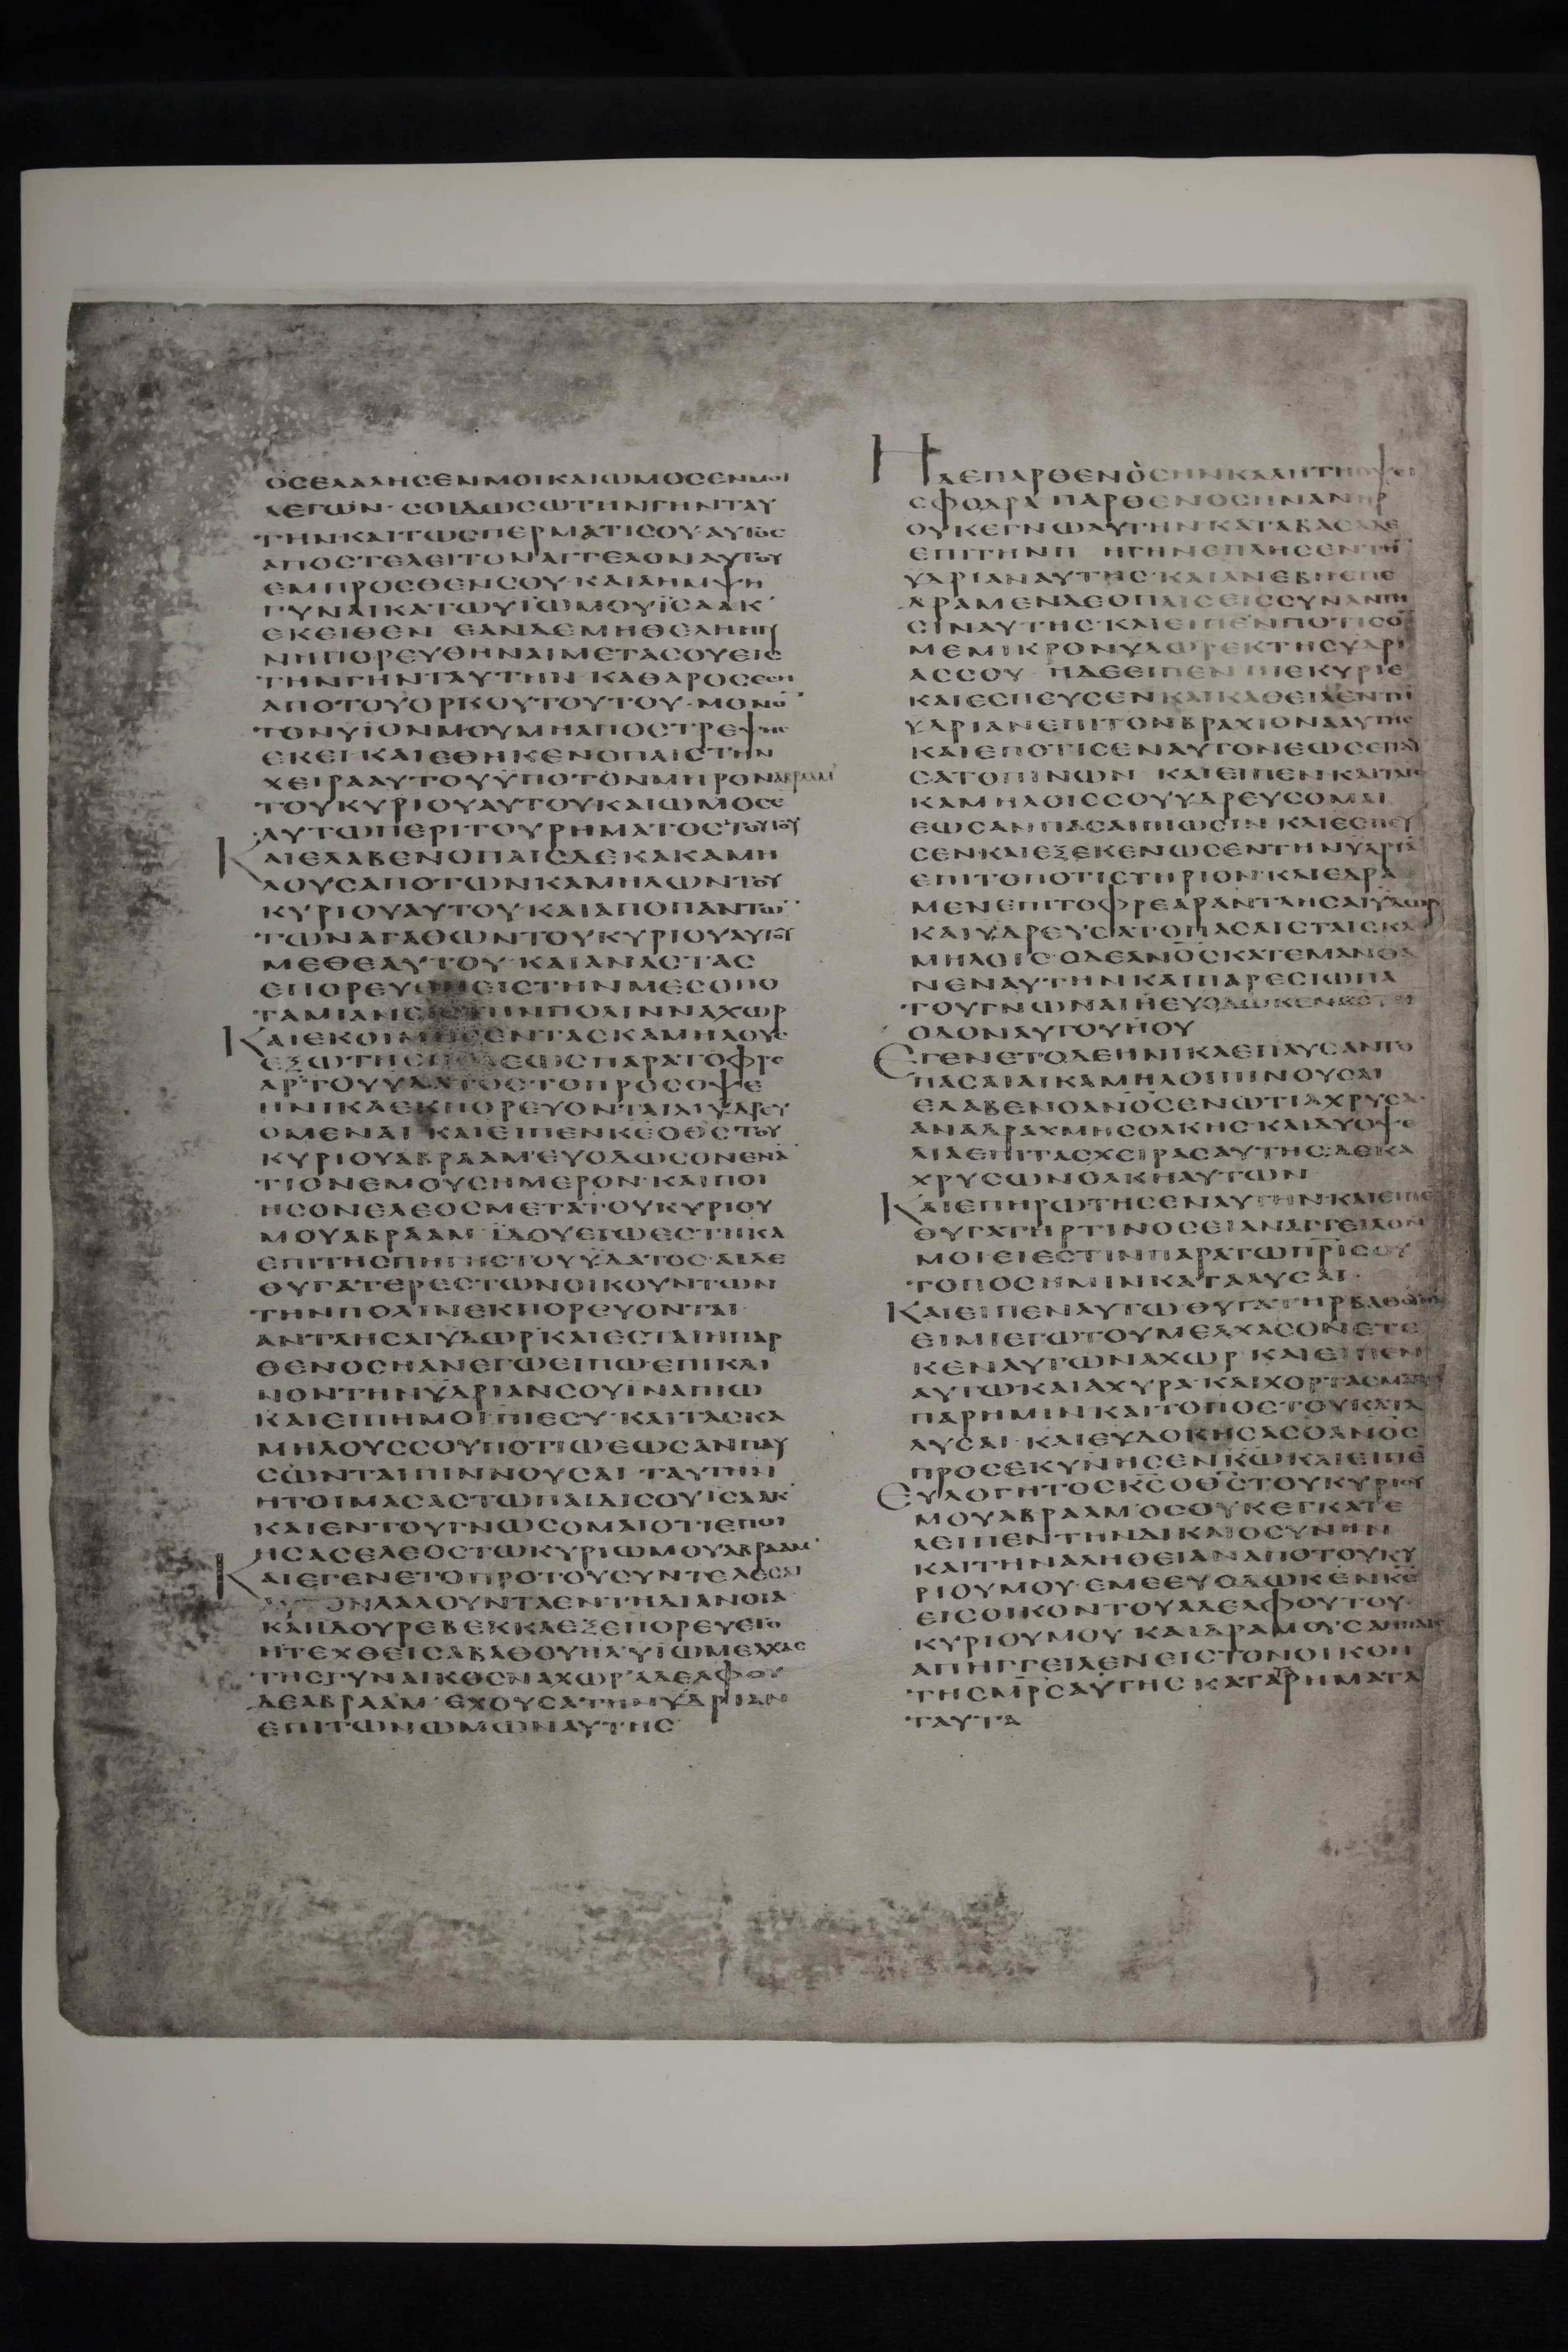 ΟCΕΛΑΛΗCΕΝΜΟΙΚΑΙΩΜΟCΕΝΜΟΙ
ΛΕΓΩΝ· CΟΙΔΩCΩΤΗΝΓΗΝΤΑΥ
ΤΗΝΚΑΙΤΩCΠΕΡΜΑΤΙCΟΥ·ΑΥΤΟC
ΑΠΟCΤΕΛΕΙΤΟΝΑΓΓΕΛΟΝΑΥΤΟΥ
ΕΜΠΡΟCΘΕΝCΟΥ·ΚΑΙΛΗΜΨΗ
ΓΥΝΑΙΚΑΤΩΥΪΩΜΟΥΪCΑΑΚ
ΕΚΕΙΘΕΝ ΕΑΝΔΕΜΗΘΕΛΗΗΓΥ
ΝΗΠΟΡΕΥΘΗΝΑΙΜΕΤΑCΟΥΕΙC
ΤΗΝΓΗΝΤΑΥΤΗΝ ΚΑΘΑΡΟCΕCΗ
ΑΠΟΤΟΥΟΡΚΟΥΤΟΥΤΟΥ·ΜΟΝΟ̄
ΤΟΝΥΪΟΝΜΟΥΜΗΑΠΟCΤΡΕΨΗC
ΕΚΕΙ·ΚΑΙΕΘΗΚΕΝΟΠΑΙCΤΗΝ
ΧΕΙΡΑΑΥΤΟΥΫΠΟΤΟΝΜΗΡΟΝΑΒΡΑΑΜ
ΤΟΥΚΥΡΙΟΥΑΥΤΟΥΚΑΙΩΜΟCΕ
ΑΥΤΩΠΕΡΙΤΟΥΡΗΜΑΤΟCΤΟΥΤΟΥ
ΚΑΙΕΛΑΒΕΝΟΠΑΙCΔΕΚΑΚΑΜΗ
ΛΟΥCΑΠΟΤΩΝΚΑΜΗΛΩΝΤΟΥ
ΚΥΡΙΟΥΑΥΤΟΥ·ΚΑΙΑΠΟΠΑΝΤΩ̄
ΤΩΝΑΓΑΘΩΝΤΟΥΚΥΡΙΟΥΑΥΤΟΥ
ΜΕΘΕΑΥΤΟΥ·ΚΑΙΑΝΑCΤΑC
ΕΠΟΡΕΥΘΗΕΙCΤΗΝΜΕCΟΠΟ
ΤΑΜΙΑΝΕΙCΤΗΝΠΟΛΙΝΝΑΧΩΡ
ΚΑΙΕΚΟΙΜΗCΕΝΤΑCΚΑΜΗΛΟΥC
ΕΞΩΤΗCΠΟΛΕΩCΠΑΡΑΤΟΦΡΕ
ΑΡΤΟΥΥΔΑΤΟCΤΟΠΡΟCΟΨΕ
ΗΝΙΚΑΕΚΠΟΡΕΥΟΝΤΑΙΑΙΥΔΡΕΥ
ΟΜΕΝΑΙ ΚΑΙΕΙΠΕΝΚCΟΘCΤΟΥ
ΚΥΡΙΟΥΑΒΡΑΑΜ·ΕΥΟΔΩCΟΝΕΝΑ
ΤΙΟΝΕΜΟΥCΗΜΕΡΟΝ·ΚΑΙΠΟΙ
ΗCΟΝΕΛΕΟCΜΕΤΑΤΟΥΚΥΡΙΟΥ
ΜΟΥΑΒΡΑΑΜ ΪΔΟΥΕΓΩΕCΤΗΚΑ
ΕΠΙΤΗCΠΗΓΗCΤΟΥΫΔΑΤΟC·ΑΙΔΕ
ΘΥΓΑΤΕΡΕCΤΩΝΟΙΚΟΥΝΤΩΝ
ΤΗΝΠΟΛΙΝΕΚΠΟΡΕΥΟΝΤΑΙ
ΑΝΤΛΗCΑΙΥΔΩΡ·ΚΑΙΕCΤΑΙΗΠΑΡ
ΘΕΝΟCΗΑΝΕΓΩΕΙΠΩ·ΕΠΙΚΛΙ
ΝΟΝΤΗΝΥΔΡΙΑΝCΟΥΙΝΑΠΙΩ
ΚΑΙΕΙΠΗΜΟΙΠΙΕCΥ·ΚΑΙΤΑCΚΑ
ΜΗΛΟΥCCΟΥΠΟΤΙΩΕΩCΑΝΠΑΥ
CΩΝΤΑΙΠΙΝΝΟΥCΑΙ ΤΑΥΤΗΝ
ΗΤΟΙΜΑCΑCΤΩΠΑΙΔΙCΟΥΙCΑΑΚ
ΚΑΙΕΝΤΟΥΤΩΓΝΩCΟΜΑΙΟΤΙΕΠΟΙ
ΗCΑCΕΛΕΟCΤΩΚΥΡΙΩΜΟΥΑΒΡΑΑΜ
ΚΑΙΕΓΕΝΕΤΟΠΡΟΤΟΥCΥΝΤΕΛΕCΑΙ
ΑΥΤΟΝΛΑΛΟΥΝΤΑΕΝΤΗΔΙΑΝΟΙΑ
ΚΑΙΙΔΟΥΡΕΒΕΚΚΑΕΞΕΠΟΡΕΥΕΤΟ
ΗΤΕΧΘΕΙCΑΒΑΘΟΥΗΛΥΪΩΜΕΛΧΑC
ΤΗCΓΥΝΑΙΚΟCΝΑΧΩΡ·ΑΔΕΛΦΟΥ
ΔΕΑΒΡΑΑΜ·ΕΧΟΥCΑΤΗΝΥΔΡΙΑΝ
ΕΠΙΤΩΝΩΜΩΝΑΥΤΗC
ΗΔΕΠΑΡΘΕΝΟCΗΝΚΑΛΗΤΗΟΨΕΙ
CΦΟΔΡΑ ΠΑΡΘΕΝΟCΗΝΑΝΗΡ
ΟΥΚΕΓΝΩΑΥΤΗΝ·ΚΑΤΑΒΑCΑΔΕ
ΕΠΙΤΗΝΠΗΓΗΝΕΠΛΗCΕΝΤΗ̄
ΥΔΡΙΑΝΑΥΤΗC·ΚΑΙΑΝΕΒΗΕΠΕ
ΔΡΑΜΕΝΔΕΟΠΑΙCΕΙCCΥΝΑΝΤΗ
CΙΝΑΥΤΗC·ΚΑΙΕΙΠΕΝΠΟΤΙCΟ̄
ΜΕΜΙΚΡΟΝΥΔΩΡΕΚΤΗCΥΔΡΙ
ΑCCΟΥ ΗΔΕΕΙΠΕΝ ΠΙΕΚΥΡΙΕ
ΚΑΙΕCΠΕΥCΕΝΚΑΙΚΑΘΕΙΛΕΝΤΗ̄
ΥΔΡΙΑΝΕΠΙΤΟΝΒΡΑΧΙΟΝΑΑΥΤΗC
ΚΑΙΕΠΟΤΙCΕΝΑΥΤΟΝΕΩCΕΠΑΥ
CΑΤΟΠΙΝΩΝ ΚΑΙΕΙΠΕΝ·ΚΑΙΤΑΙC
ΚΑΜΗΛΟΙCCΟΥΥΔΡΕΥCΟΜΑΙ
ΕΩCΑΝΠΑCΑΙΠΙΩCΙΝ ΚΑΙΕCΠΕΥ
CΕΝΚΑΙΕΞΕΚΕΝΩCΕΝΤΗΝΥΔΡΙᾹ
ΕΠΙΤΟΠΟΤΙCΤΗΡΙΟΝ·ΚΑΙΕΔΡΑ
ΜΕΝΕΠΙΤΟΦΡΕΑΡΑΝΤΛΗCΑΙΥΔΩΡ
ΚΑΙΥΔΡΕΥCΑΤΟΠΑCΑΙCΤΑΙCΚΑ
ΜΗΛΟΙC·ΟΔΕΑΝΟCΚΑΤΕΜΑΝΘΑ
ΝΕΝΑΥΤΗΝΚΑΙΠΑΡΕCΙΩΠΑ
ΤΟΥΓΝΩΝΑΙΗΕΥΟΔΩΚΕΝΚCΤΗ̄
ΟΔΟΝΑΥΤΟΥΗΟΥ
ΕΓΕΝΕΤΟΔΕΗΝΙΚΑΕΠΑΥCΑΝΤΟ
ΠΑCΑΙΑΙΚΑΜΗΛΟΙΠΙΝΟΥCΑΙ
ΕΛΑΒΕΝΟΑΝΟCΕΝΩΤΙΑΧΡΥCΑ
ΑΝΑΔΡΑΧΜΗCΟΛΚΗC·ΚΑΙΔΥΟΨΕ
ΛΙΑΕΠΙΤΑCΧΕΙΡΑCΑΥΤΗC·ΔΕΚΑ
ΧΡΥCΩΝΟΛΚΗΑΥΤΩΝ
ΚΑΙΕΠΗΡΩΤΗCΕΝΑΥΤΗΝ·ΚΑΙΕΙΠΕ
ΘΥΓΑΤΗΡΤΙΝΟCΕΙΑΝΑΓΓΕΙΛΟΝ
ΜΟΙΕΙΕCΤΙΝΠΑΡΑΤΩΠΡΙCΟΥ
ΤΟΠΟCΗΜΙΝΚΑΤΑΛΥCΑΙ·
ΚΑΙΕΙΠΕΝΑΥΤΩΘΥΓΑΤΗΡΒΑΘΟΥΗΛ
ΕΙΜΙΕΓΩΤΟΥΜΕΛΧΑCΟΝΕΤΕ
ΚΕΝΑΥΤΩΝΑΧΩΡ ΚΑΙΕΙΠΕΝ
ΑΥΤΩΚΑΙΑΧΥΡΑ·ΚΑΙΧΟΡΤΑCΜΑΤΑ
ΠΑΡΗΜΙΝ·ΚΑΙΤΟΠΟCΤΟΥΚΑΤΑ
ΛΥCΑΙ·ΚΑΙΕΥΔΟΚΗCΑCΟΑΝΟC
ΠΡΟCΕΚΥΝΗCΕΝΚΩΚΑΙΕΙΠΕ
ΕΥΛΟΓΗΤΟCΚCΟΘCΤΟΥΚΥΡΙΟΥ
ΜΟΥΑΒΡΑΑΜ·ΟCΟΥΚΕΓΚΑΤΕ
ΛΕΙΠΕΝΤΗΝΔΙΚΑΙΟCΥΝΗΝ
ΚΑΙΤΗΝΑΛΗΘΕΙΑΝΑΠΟΤΟΥΚΥ
ΡΙΟΥΜΟΥ·ΕΜΕΕΥΟΔΩΚΕΝΚC
ΕΙCΟΙΚΟΝΤΟΥΑΔΕΛΦΟΥΤΟΥ
ΚΥΡΙΟΥΜΟΥ ΚΑΙΔΡΑΜΟΥCΑΗΠΑΙC
ΑΠΗΓΓΕΙΛΕΝΕΙCΤΟΝΟΙΚΟΝ
ΤΗCΜΡCΑΥΤΗC ΚΑΤΑΤΑΡΗΜΑΤΑ
ΤΑΥΤΑ